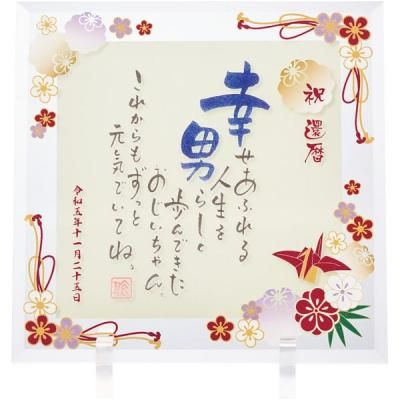 祝
還暦
幸せあふれる
人生を
男らしと
歩んできた
おじいちゃん。
これからもずっと
元気でいてね。
令和五年十一月二十五日